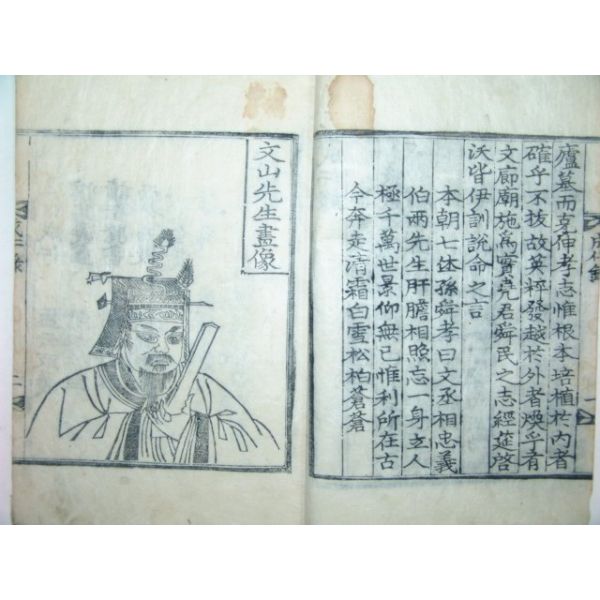 廬墓而克伸孝志惟根本培植於內者
確乎不拔故英粹發越於外者煥乎有
文廊廟施爲實堯君舜民之志經筵啓
沃皆伊訓說命之言
本朝七休孫舜孝曰文丞相忠義
伯两先生肝膽相照忘一身立人
極千萬世景仰無已惟利所在古
今奔走清霜白雪松柏蒼蒼
文山先生畫像